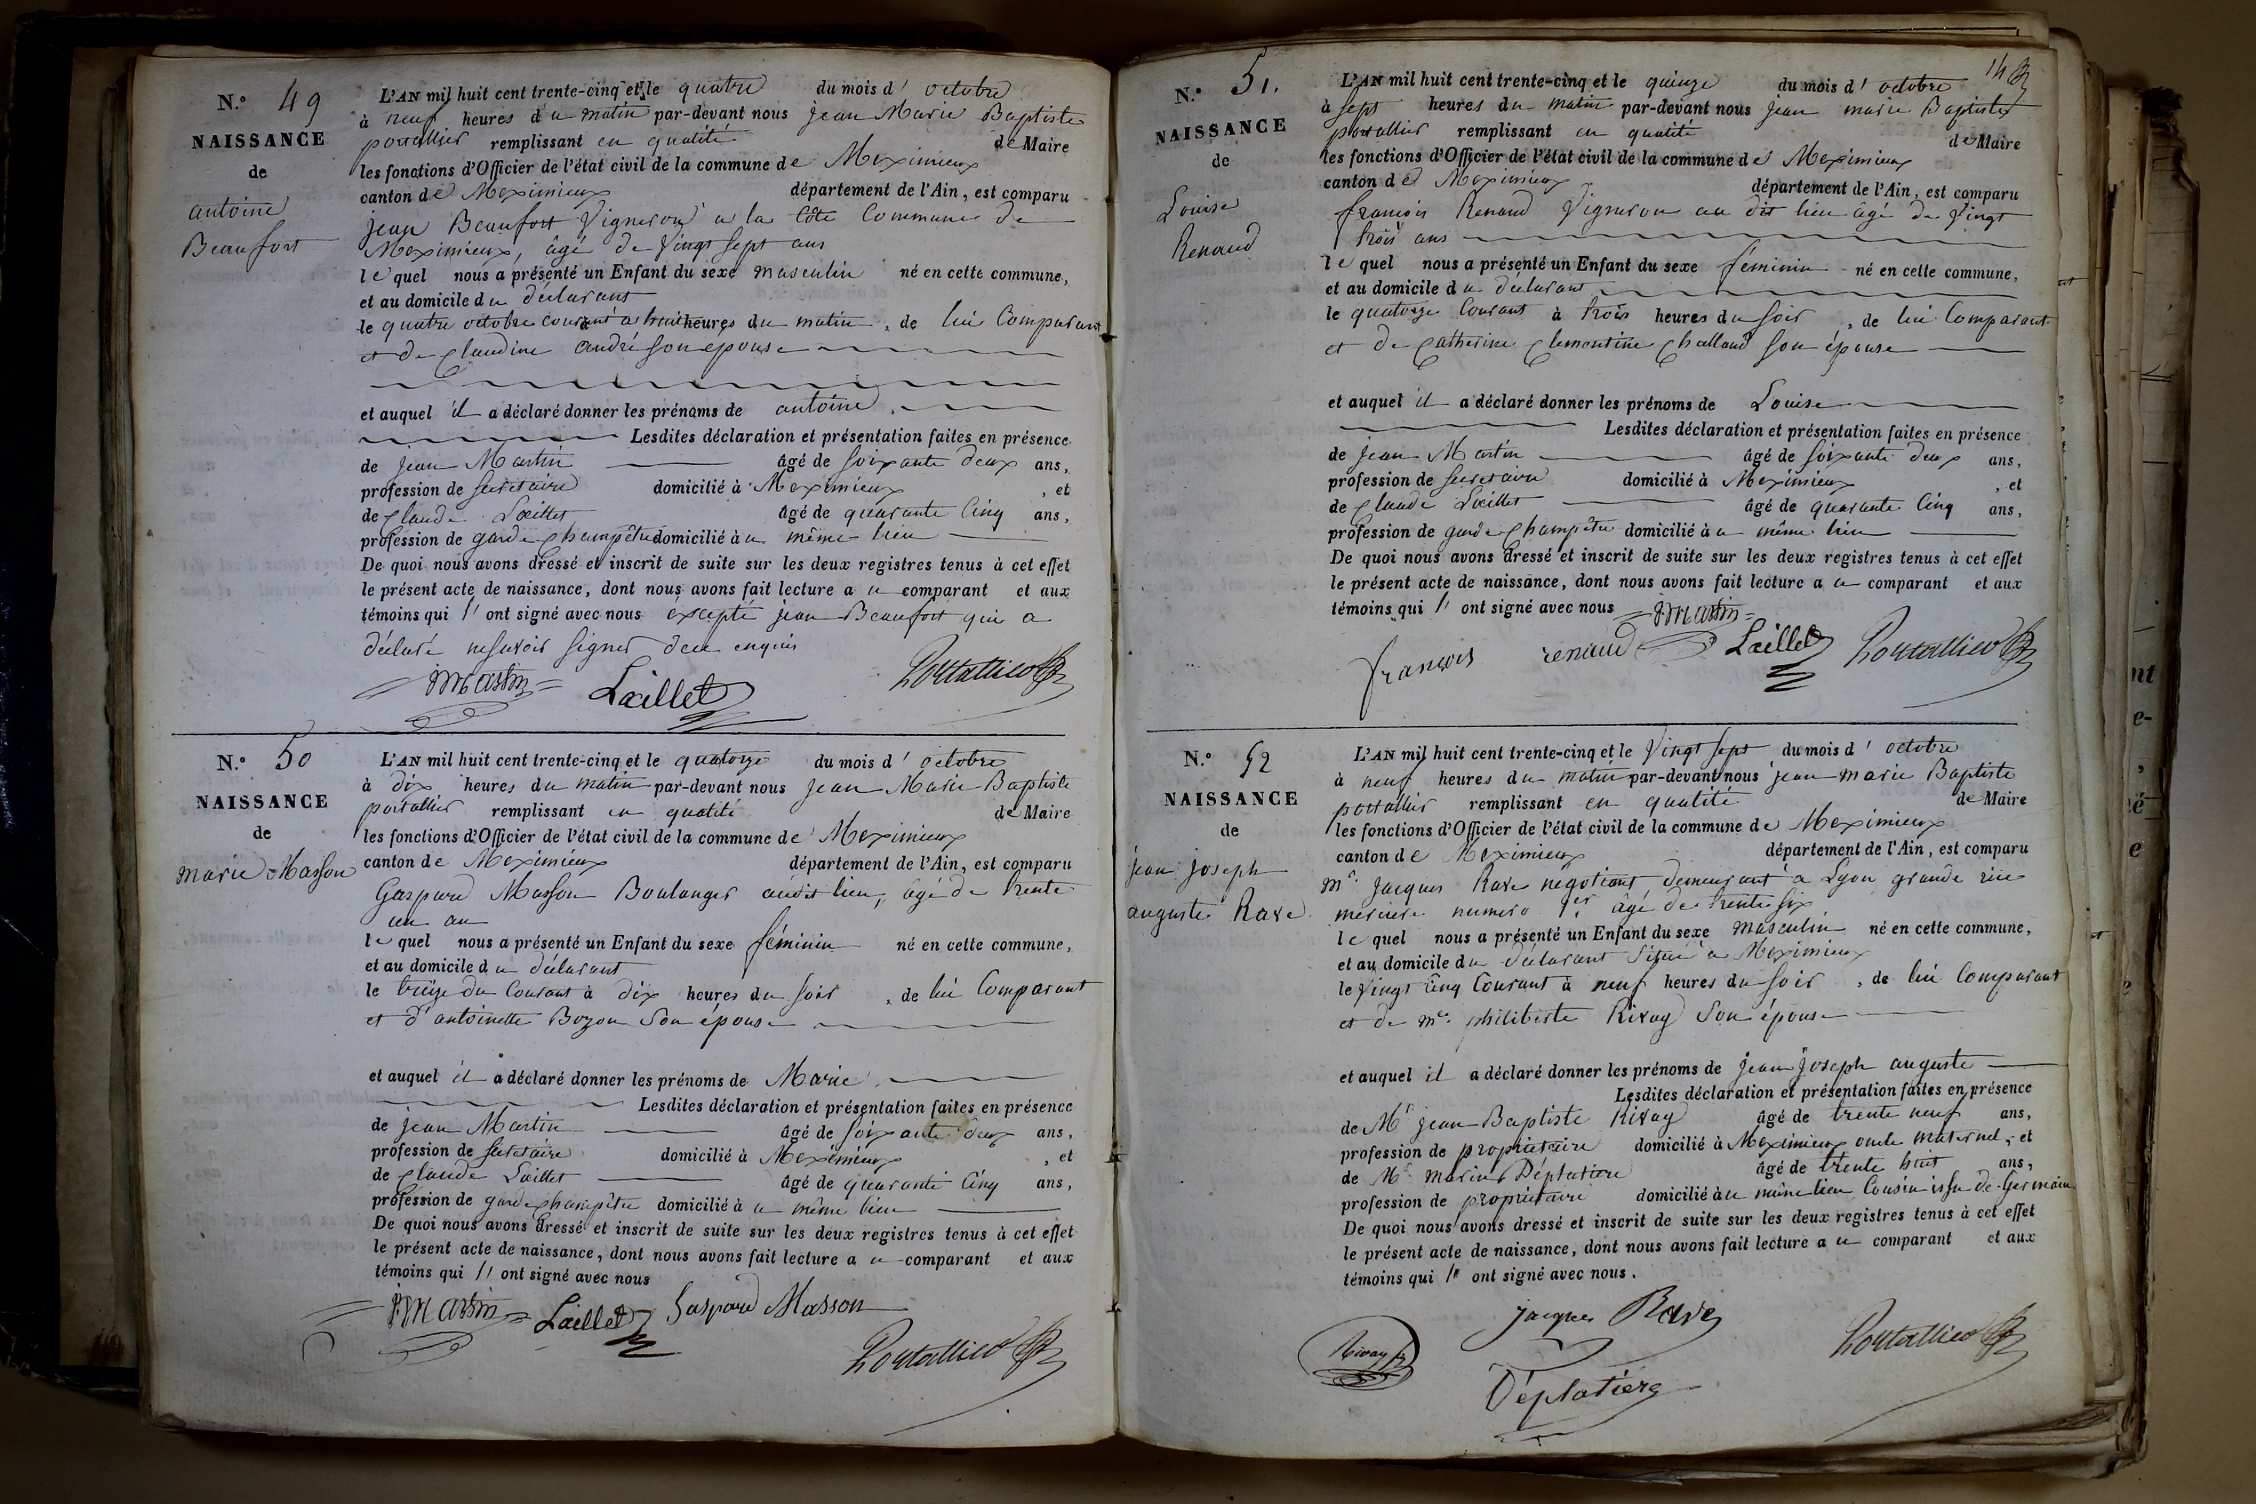 N.° 49
NAISSANCE
de
antoine
Beaufort
L'AN mil huit cent trente-cinq et le quatre du mois d'octobre
à neuf heures du matin par-devant nous jean Marie Baptiste
portallier remplissant en qualité de Maire
les fonctions d'Officier de l'état civil de la commune de Meximieux
canton de Meximieux département de l'Ain, est comparu
jean Beaufort Vigneron a la Côte Commune de
Meximieux, âgé de Vingt sept ans
le quel nous a présenté un Enfant du sexe masculin né en cette commune,
et au domicile du déclarant
le quatre octobre courant a huit heures du matin, de lui Comparant
et de Claudine andré son épouse
et auquel il a déclaré donner les prénoms de antoine.
Lesdites déclaration et présentation faites en présence
de jean Martin âgé de soixante deux ans,
profession de secretaire domicilié à Meximieux, et
de Claude Lœillet âgé de quarante Cinq ans,
profession de garde champêtre domicilié à u même lieu
De quoi nous avons dressé et inscrit de suite sur les deux registres tenus à cet effet
le présent acte de naissance, dont nous avons fait lecture a u comparant et aux
témoins qui ont signé avec nous excepté jean Beaufort qui a
déclaré ne savoir signer de ce enquis
jmartin Lœillet Portallier
N.° 50
NAISSANCE
de
marie Masson
L'AN mil huit cent trente-cinq et le quatorze du mois d'octobre
à dix heures du matin par-devant nous jean Marie Baptiste
portallier remplissant en qualité de Maire
les fonctions d'Officier de l'état civil de la commune de Meximieux
canton de Meximieux département de l'Ain, est comparu
Gaspard Masson Boulanger audit lieu, âgé de trente
un an
le quel nous a présenté un Enfant du sexe féminin né en cette commune,
et au domicile du déclarant
le treize du Courant à dix heures du soir, de lui Comparant
et d'antoinette Bozon son épouse
et auquel il a déclaré donner les prénoms de Marie.
Lesdites déclaration et présentation faites en présence
de jean Martin âgé de soixante deux ans,
profession de secretaire domicilié à Meximieux, et
de Claude Lœillet âgé de quarante Cinq ans,
profession de garde champêtre domicilié à u même lieu
De quoi nous avons dressé et inscrit de suite sur les deux registres tenus à cet effet
le présent acte de naissance, dont nous avons fait lecture a u comparant et aux
témoins qui ont signé avec nous
jmartin Lœillet Gaspard Masson
Portallier
14
N.° 51.
NAISSANCE
de
Louise
Renaud
L'AN mil huit cent trente-cinq et le quinze du mois d'octobre
à sept heures du matin par-devant nous jean marie Baptiste
portallier remplissant en qualité de Maire
les fonctions d'Officier de l'état civil de la commune de Meximieux
canton de Meximieux département de l'Ain, est comparu
françois Renaud Vigneron au dit lieu âgé de Vingt
trois ans
le quel nous a présenté un Enfant du sexe féminin né en cette commune,
et au domicile du déclarant
le quatorze Courant à trois heures du soir, de lui Comparant
et de Catherine Clementine Challand son épouse
et auquel il a déclaré donner les prénoms de Louise
Lesdites déclaration et présentation faites en présence
de jean Martin âgé de soixante deux ans,
profession de secretaire domicilié à Meximieux, et
de Claude Lœillet âgé de quarante Cinq ans,
profession de garde champêtre domicilié à u même lieu
De quoi nous avons dressé et inscrit de suite sur les deux registres tenus à cet effet
le présent acte de naissance, dont nous avons fait lecture a u comparant et aux
témoins qui ont signé avec nous jmartin
françois renaud Lœillet Portallier
N.° 52
NAISSANCE
de
jean joseph
auguste Rave
L'AN mil huit cent trente-cinq et le Vingt sept du mois d'octobre
à neuf heures du matin par-devant nous jean marie Baptiste
portallier remplissant en qualité de Maire
les fonctions d'Officier de l'état civil de la commune de Meximieux
canton de Meximieux département de l'Ain, est comparu
mr. jacques Rave négotiant, demeurant à Lyon grande rue
merciere numero 1er. âgé de trente six
le quel nous a présenté un Enfant du sexe masculin né en cette commune,
et au domicile du déclarant situé a Meximieux
le Vingt Cinq Courant à neuf heures du soir, de lui Comparant
et de me. philiberte Rivay son épouse
et auquel il a déclaré donner les prénoms de jean joseph auguste
Lesdites déclaration et présentation faites en présence
de Mr jean Baptiste Rivay âgé de trente neuf ans,
profession de propriétaire domicilié à Meximieux oncle maternel, et
de Mr. marin Déplatière âgé de trente huit ans,
profession de propriétaire domicilié à u même lieu Cousin issu de Germain
De quoi nous avons dressé et inscrit de suite sur les deux registres tenus à cet effet
le présent acte de naissance, dont nous avons fait lecture a u comparant et aux
témoins qui ont signé avec nous.
jacques Rave
Rivay Portallier
Déplatière